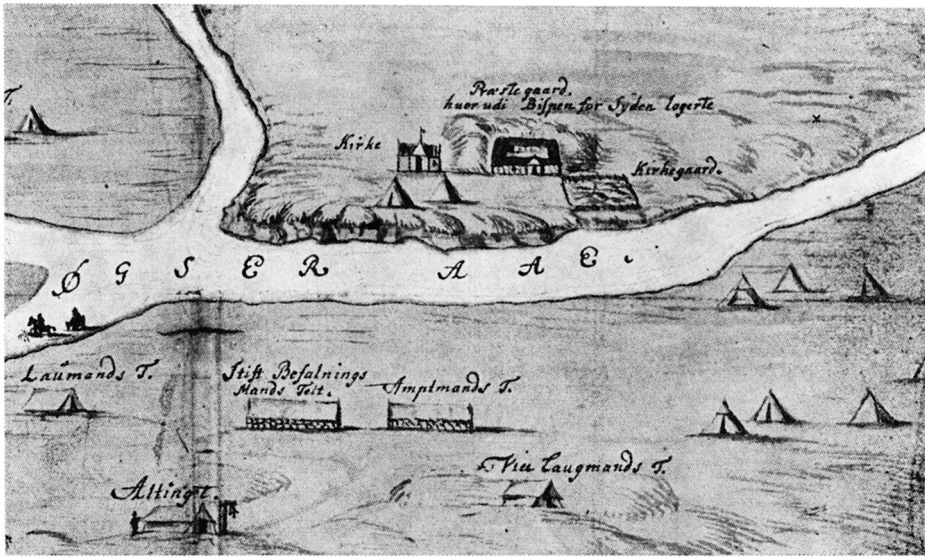 T.
Præste gaard.
huor udi Bispen for Syden logerte
Kirke
Kirkegaard.
ØGSER AAE.
Laumands T.
Stift Befalnings
Mands Telt.
Amptmands T.
Vice Laugmands T.
Alting t.